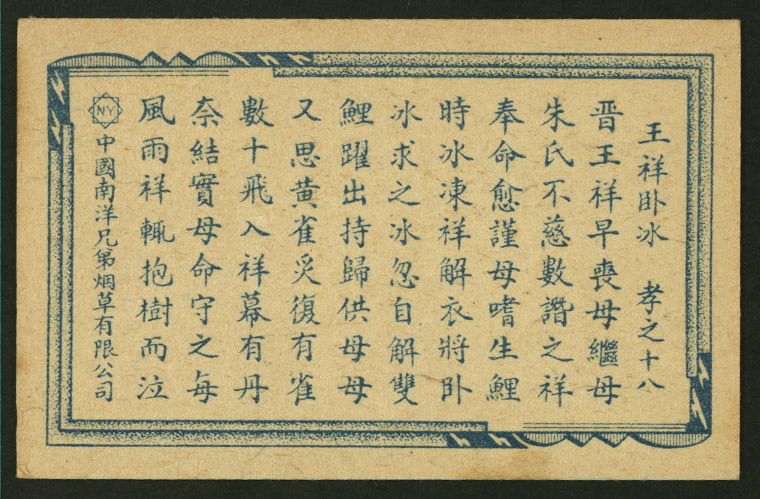 王祥卧冰 孝之十八
晋王祥早喪母繼母
朱氏不慈數譖之祥
奉命愈謹母嗜生鯉
時冰凍祥解衣將卧
冰求之冰忽自解雙
鯉躍出持歸供母母
又思黄雀炙復有雀
數十飛入祥幕有丹
奈結實母命守之每
風雨祥輒抱樹而泣
NY
中國南洋兄弟烟草有限公司